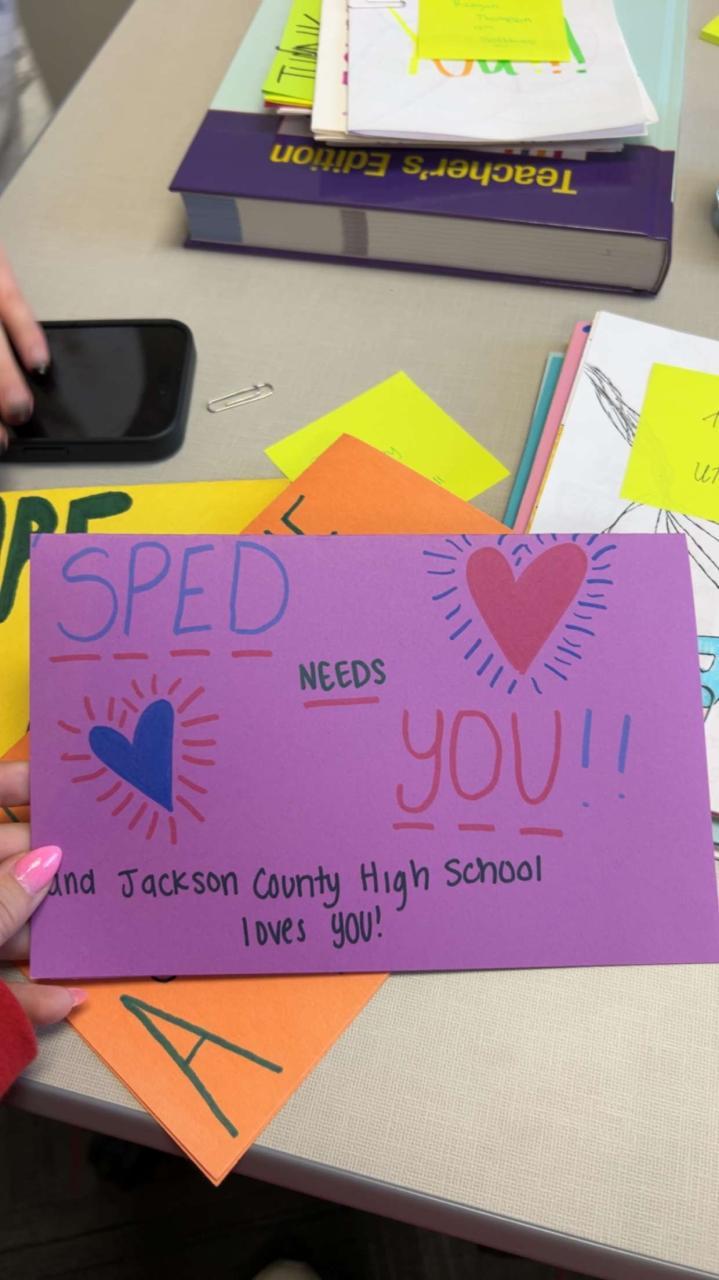 Reagan
Thompson
THANK
Teacher's Edition
SPED
NEEDS
YOU!!
and Jackson County High School
loves YOU!
A